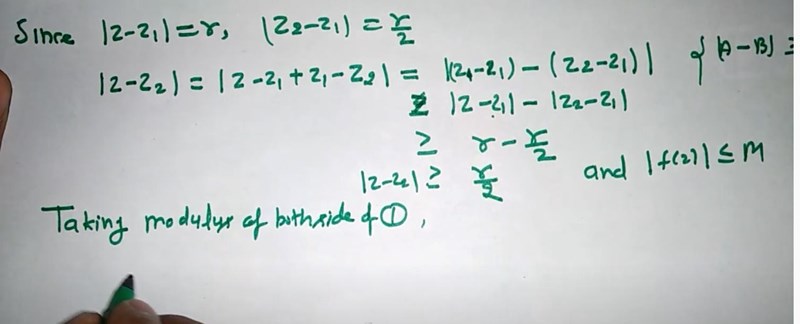 Since |z-z₁|=r, |z₂-z₁| = r/2
|z-z₂| = |z-z₁+z₁-z₂| = |(z-z₁)-(z₂-z₁)| { |A-B| ≥
≥ |z-z₁| - |z₂-z₁|
≥ r - r/2
|z-z₂| ≥ r/2 and |f(z)| ≤ M
Taking modulus of both side of ①,